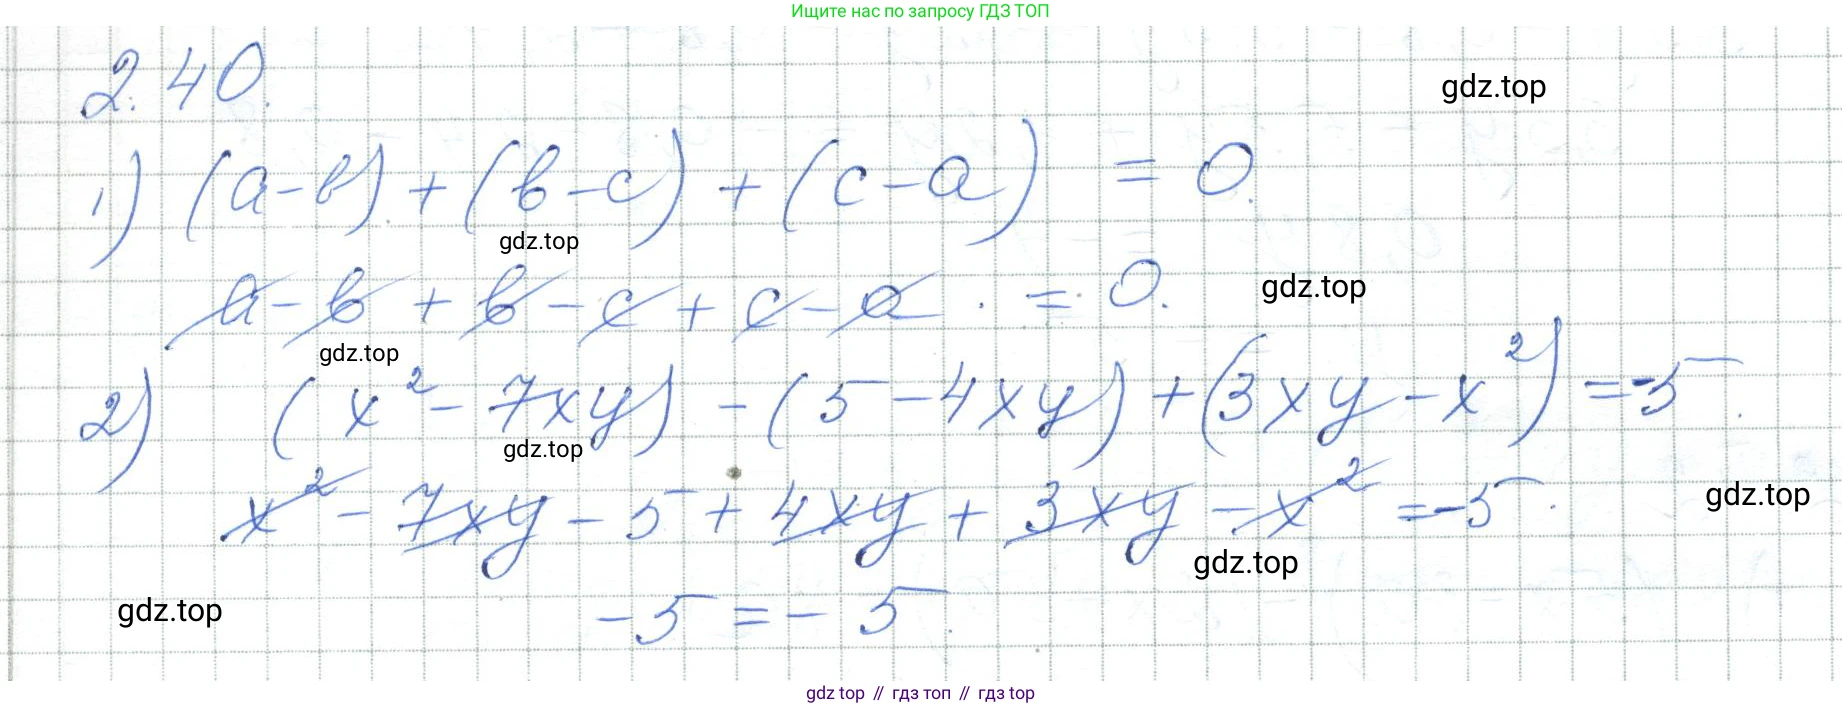 Ищите нас по запросу ГДЗ ТОП
2.40.
gdz.top
1) (a-b) + (b-c) + (c-a) = 0.
gdz.top
a-b + b-c + c-a = 0.
gdz.top
gdz.top
2) (x²-7xy) - (5-4xy) + (3xy-x²) = -5.
gdz.top
x² - 7xy - 5 + 4xy + 3xy - x² = -5.
gdz.top
gdz.top
gdz.top
-5 = -5.
gdz top // гдз топ // гдз top